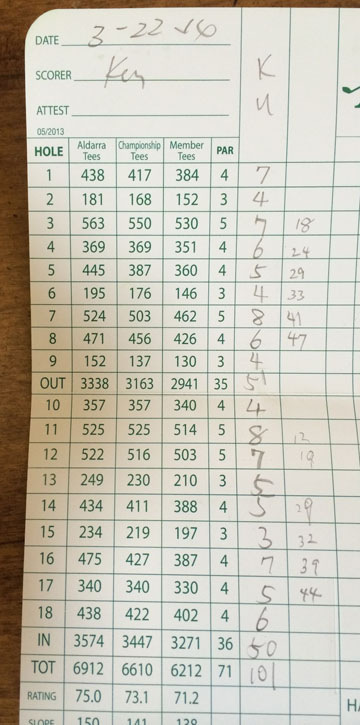 DATE 3-22-16
SCORER Ken K
ATTEST U
05/2013
HOLE Aldarra Tees Championship Tees Member Tees PAR
1 438 417 384 4 7
2 181 168 152 3 4
3 563 550 530 5 7 18
4 369 369 351 4 6 24
5 445 387 360 4 5 29
6 195 176 146 3 4 33
7 524 503 462 5 8 41
8 471 456 426 4 6 47
9 152 137 130 3 4
OUT 3338 3163 2941 35 51
10 357 357 340 4 4
11 525 525 514 5 8 12
12 522 516 503 5 7 19
13 249 230 210 3 5
14 434 411 388 4 5 29
15 234 219 197 3 3 32
16 475 427 387 4 7 39
17 340 340 330 4 5 44
18 438 422 402 4 6
IN 3574 3447 3271 36 50
TOT 6912 6610 6212 71 101
RATING 75.0 73.1 71.2
SLOPE 150 141 139